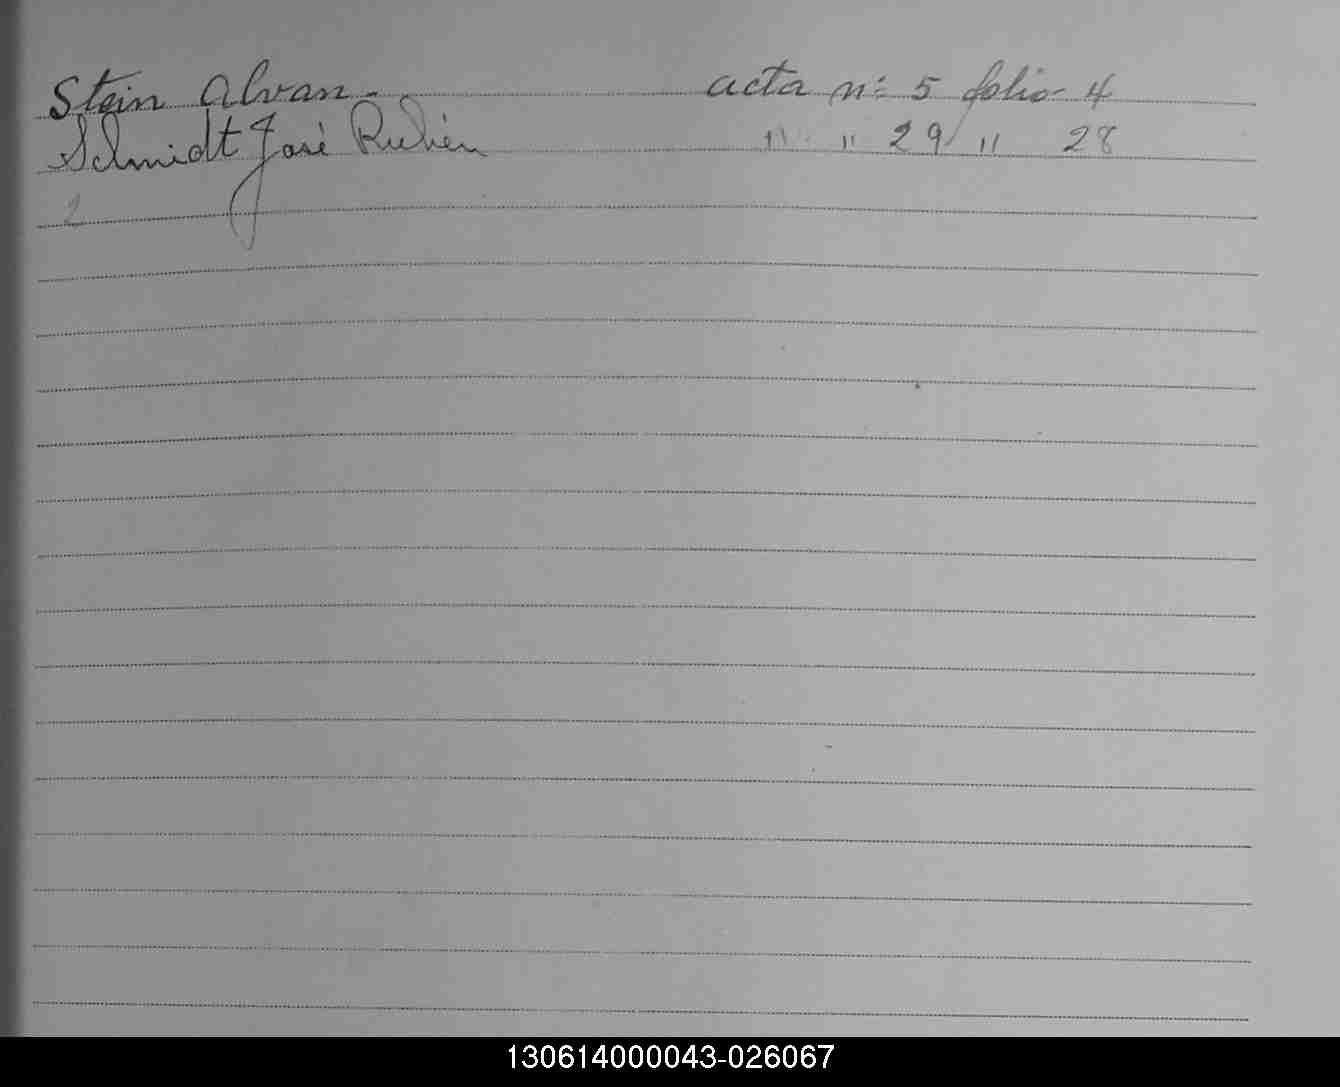 Stein Alvan. acta nº 5 folio 4
Schmidt José Rubén " " 29 " 28
130614000043-026067